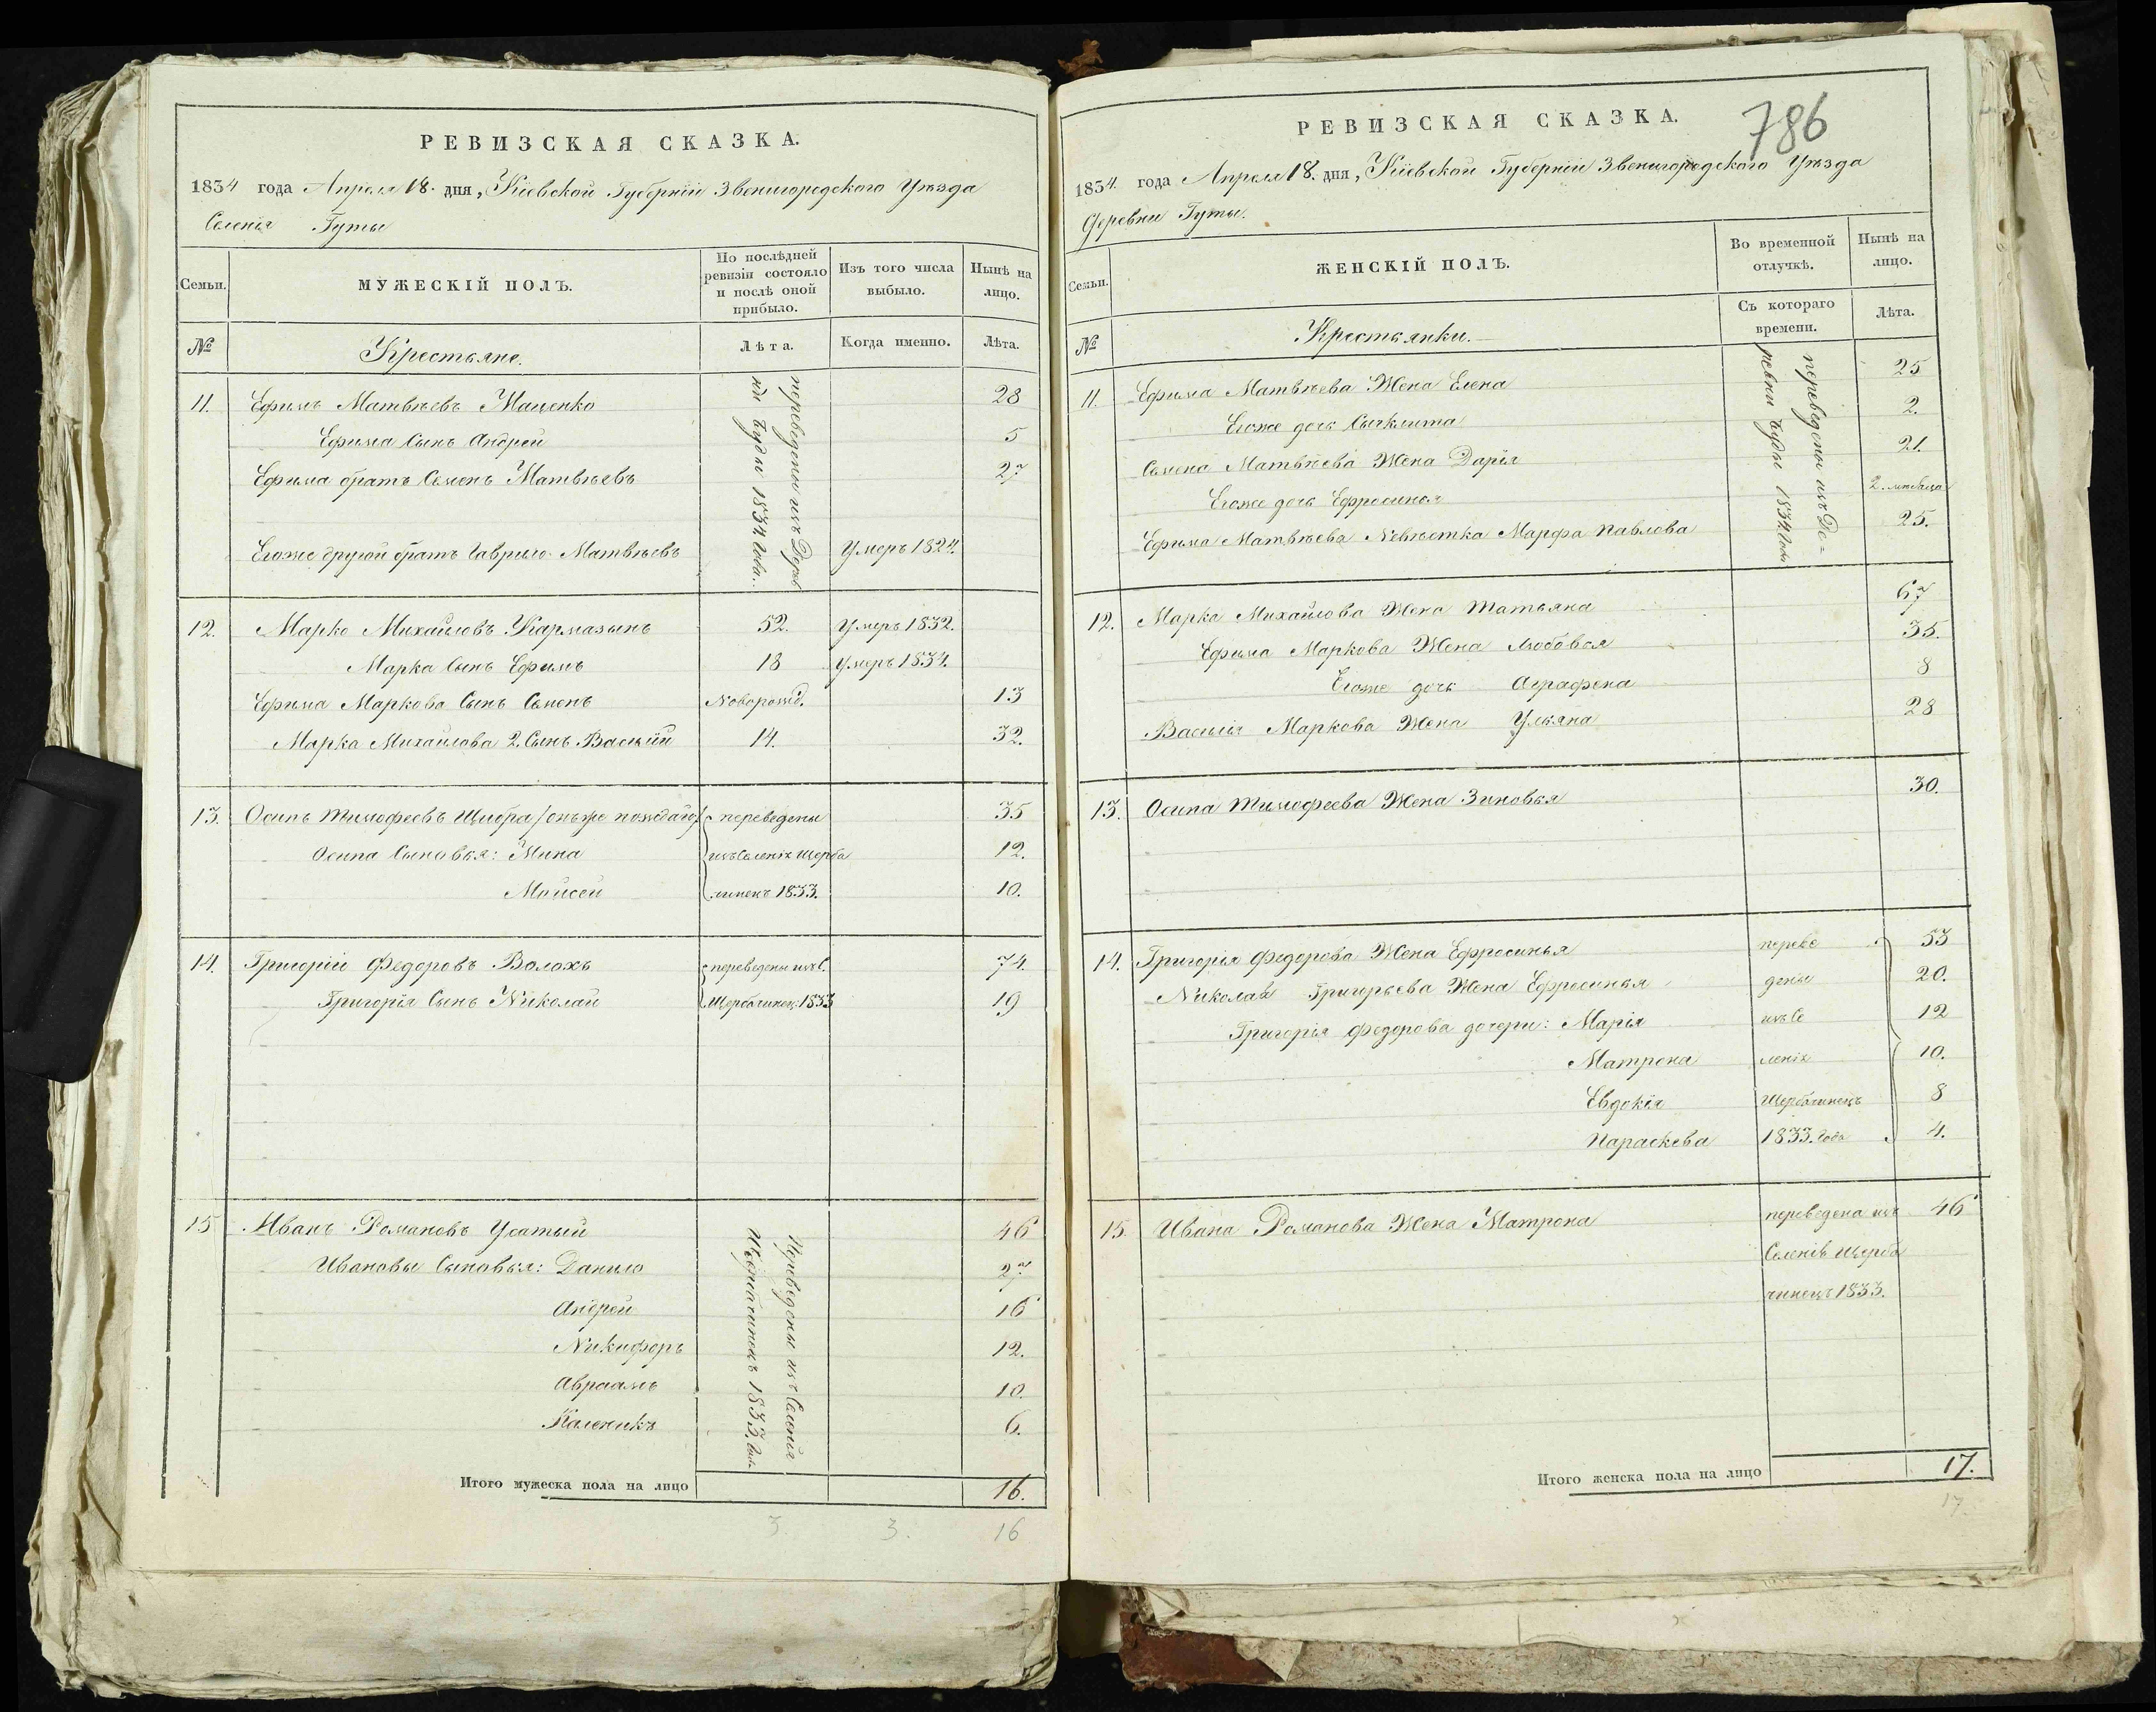 РЕВИЗСКАЯ СКАЗКА.
1834 года Апреля 18. дня, Кіевской Губерніи Звенигородского Уѣзда
Селенія Гуты
Семьи.
МУЖЕСКІЙ ПОЛЪ.
По послѣдней ревизіи состояло и послѣ оной прибыло.
Изъ того числа выбыло.
Нынѣ на лицо.
№
Крестьяне.
Лѣта.
Когда именно.
Лѣта.
переведены изъ Дерев
ни Буды 1834. Года.
11. Ефимъ Матвѣевъ Маценко 28
Ефима Сынъ Андрей 5
Ефима братъ Семенъ Матвѣевъ 27
Егоже другой братъ Гаврило Матвѣевъ Умеръ 1824.
12. Марко Михайловъ Кармазынъ 52. Умеръ 1832.
Марка Сынъ Ефимъ 18 Умеръ 1834.
Ефима Маркова Сынъ Семенъ Новорожд. 13
Марка Михайлова 2. Сынъ Василій 14. 32.
13. Осипъ Тимофеевъ переведены 35
Осипа Сыновья: Мина изъ Селенія Щерба 12.
Мойсей чинецъ 1833. 10.
14. Григорій Федоровъ Волохъ переведены изъ С. 74.
Григорія Сынъ Николай Щербачинец. 1833 19
15 Иванъ Романовъ Усатый 46
Ивановы Сыновья: Данило 27
Андрей 16
Никифоръ 12.
Авраамъ 10.
Каленикъ 6.
Переведены изъ Селенія
Щербачинецъ 1833. Года
Итого мужеска пола на лицо 16.
3. 3. 16
786
РЕВИЗСКАЯ СКАЗКА.
1834. года Апреля 18. дня, Кіевской Губерніи Звенигородского Уѣзда
Деревни Гуты.
Семьи.
ЖЕНСКІЙ ПОЛЪ.
Во временной отлучкѣ.
Нынѣ на лицо.
№
Крестьянки.
Съ котораго времени.
Лѣта.
переведены изъ Де=
ревни Буды 1834. Года
11. Ефима Матвѣева Жена Елена 25
Егоже дочь 2.
Семена Матвѣева Жена Дарія 21.
Егоже дочь Ефросинья 2. мѣсяца
Ефима Матвѣева Невѣстка Марфа Павлова 25.
12. Марка Михайлова Жена Татьяна 67
Ефима Маркова Жена Любовья 35.
Егоже дочь Аграфена 8
Василія Маркова Жена Ульяна 28
13. Осипа Тимофеева Жена Зиновья 30.
14. Григорія Федорова Жена Ефросинья переве 53
Николая Григорьева Жена Ефросинья дены 20.
Григорія Федорова дочери: Марія изъ Се 12
Матрона ленія 10.
Евдокія Щербачинецъ 8
Параскева 1833. Года 4.
15. Ивана Романова Жена Матрона переведена изъ 46
Селенія Щерба
чинецъ 1833.
Итого женска пола на лицо 17.
17.